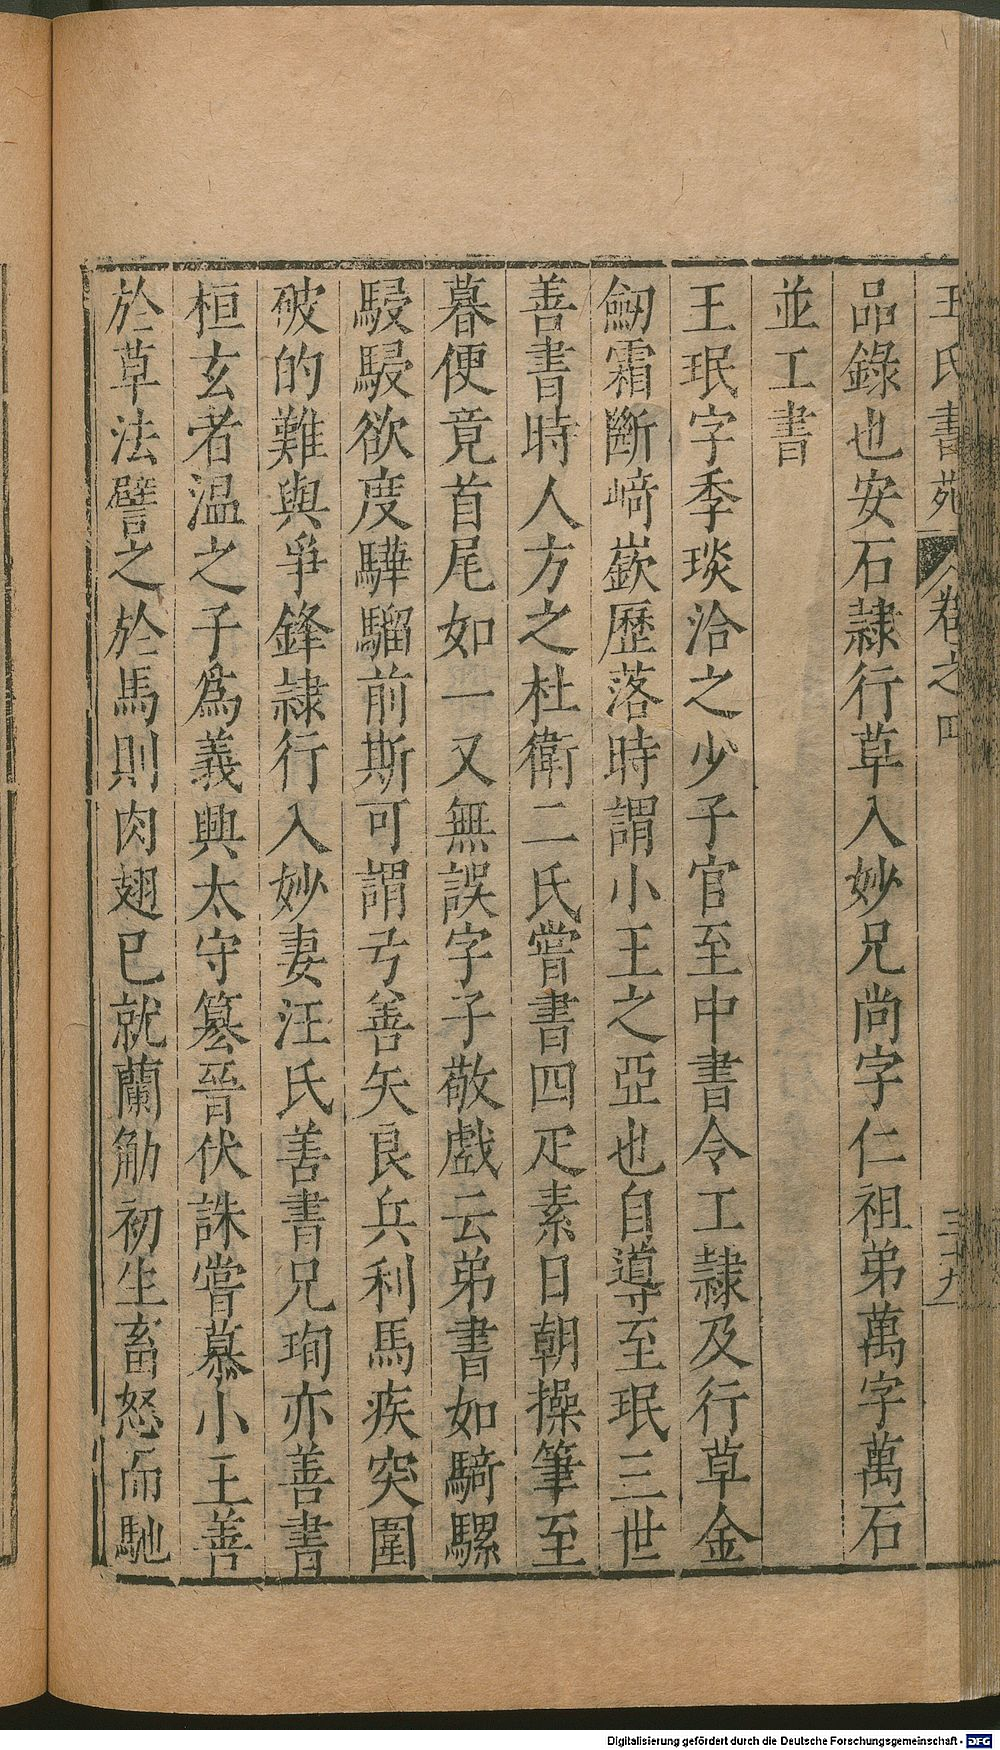 王氏書苑 卷之四 三十九
品錄也安石隷行草入妙兄尚字仁祖弟萬字萬石
並工書
王珉字季琰洽之少子官至中書令工隷及行草金
劒霜斷﨑嶔歷落時謂小王之亞也自導至珉三世
善書時人方之杜衛二氏嘗書四疋素日朝操筆至
暮便竟首尾如一又無誤字子敬戲云弟書如騎騾
駸駸欲度驊騮前斯可謂弓善矢良兵利馬疾突圍
破的難與爭鋒隷行入妙妻汪氏善書兄珣亦善書
桓玄者温之子爲義興太守簒晉伏誅嘗慕小王善
於草法譬之於馬則肉翅已就蘭觔初生畜怒而馳
Digitalisierung gefördert durch die Deutsche Forschungsgemeinschaft - DFG